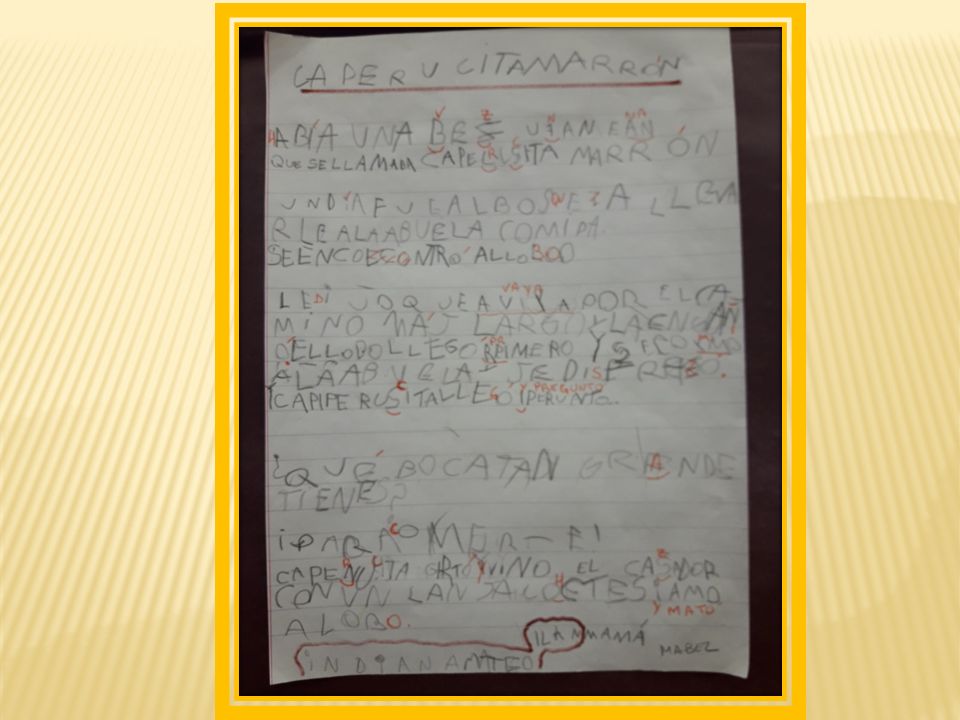 CAPERUCITAMARRÓN
ABÍA UNA BES UIAN
QUE SE LLAMABA CAPERUSITA MARRÓN
UN DÍA FUE AL BOSQUE A LLEVA
RLE A LA ABUELA COMIDA.
SE ENCO CONTRÓ AL LOBO
LE DIJO QUE A POR EL CA-
MINO MÁS LARGO Y LA
EL LOBO LLEGO PRIMERO Y SE COMIO
A LA ABUELA Y SE DISFRAZO.
Y CAPIPERUSITA LLEGÓ I PERUNTO.
Y PREGUNTO
¿QUÉ BOCA TAN GRANDE
TIENES?
¡PARA COMERTE!
CAPERUSITA GRITO Y VINO EL CASADOR
CON UN LANSACOETES IAMO
Y MATO
A LOBO.
ILAMMAMÁ MABEL
INDIANAMATEO